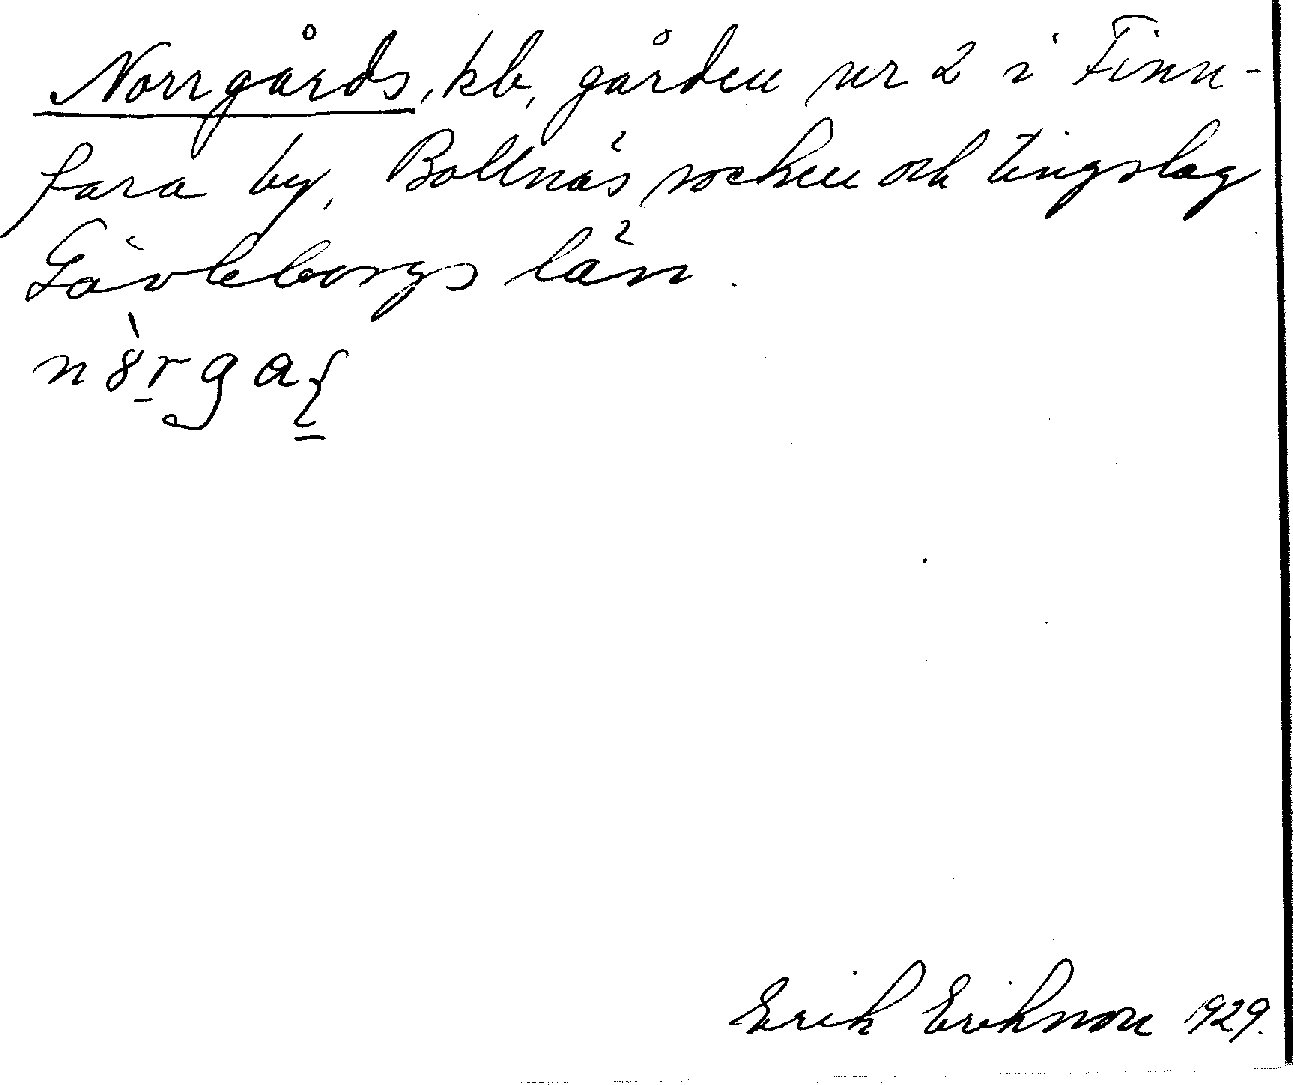 Norrgårds, kb, gården nr 2 i Finn-
fara by, Bollnäs socken och tingslag
Gävleborgs län.
Erik Eriksson 1929.